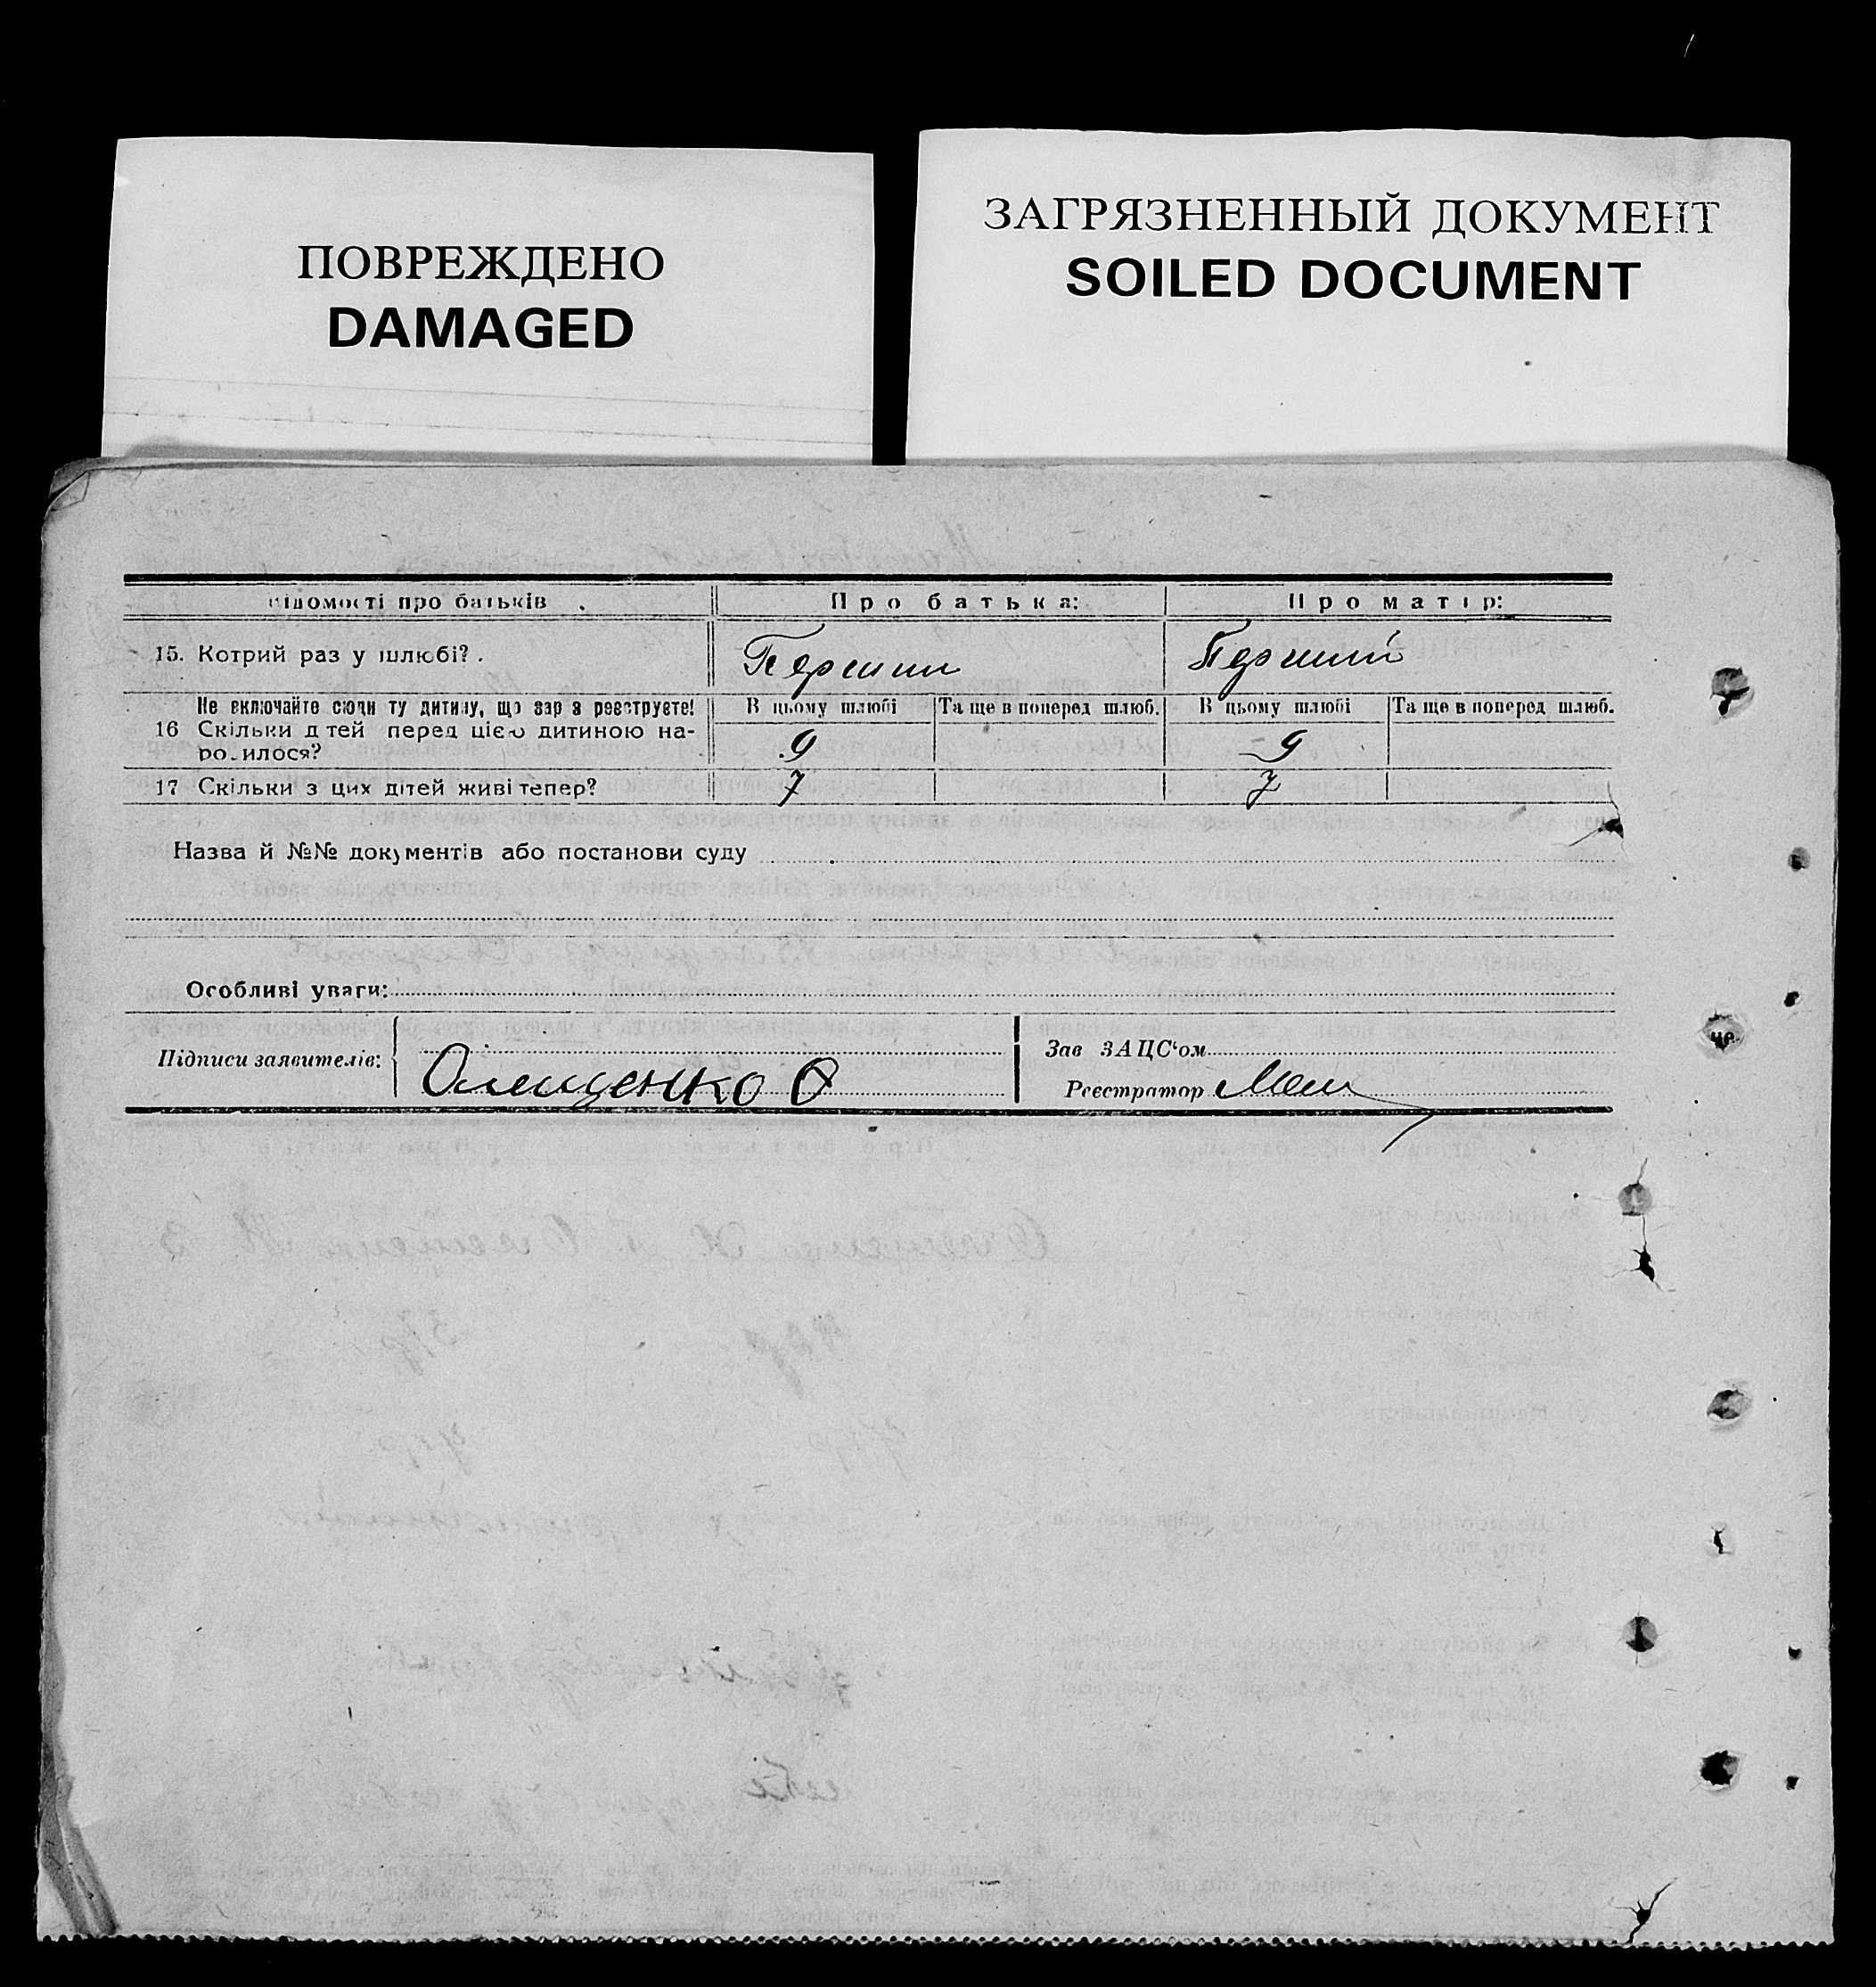 ПОВРЕЖДЕНО
DAMAGED
ЗАГРЯЗНЕННЫЙ ДОКУМЕНТ
SOILED DOCUMENT
відомості про батьків Про батька: Про матір:
15. Котрий раз у шлюбі? Перший Перший
Не включайте сюди ту дитину, що зараз реєструєте! В цьому шлюбі Та ще в поперед шлюб. В цьому шлюбі Та ще в поперед шлюб.
16 Скільки дітей перед цією дитиною на-
родилося? 9 9
17 Скільки з цих дітей живі тепер? 7 7
Назва й №№ документів або постанови суду
Особливі уваги:
Підписи заявителів: Олещенко О
Зав ЗАЦС'ом
Реєстратор